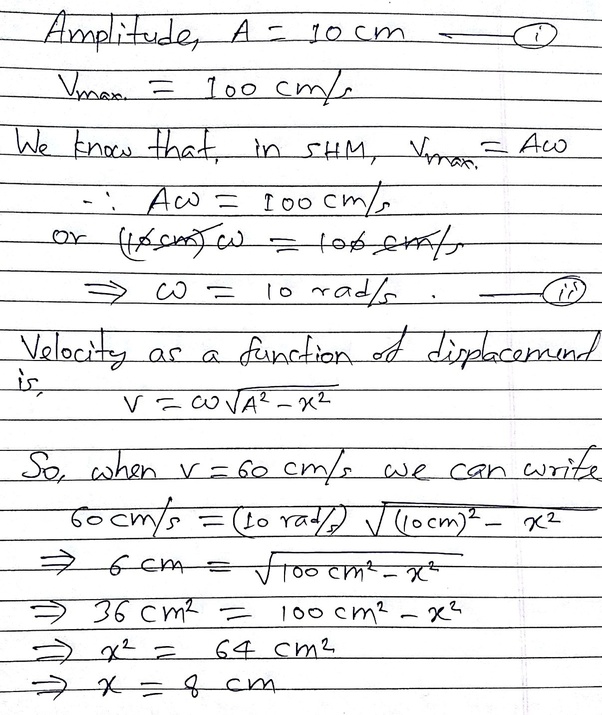 Amplitude, A = 10 cm —— (i)
Vmax. = 100 cm/s
We know that, in SHM, Vmax. = Aω
∴ Aω = 100 cm/s
or (10 cm) ω = 100 cm/s
⇒ ω = 10 rad/s . —— (ii)
Velocity as a function of displacement
is,
v = ω√(A² – x²)
So, when v = 60 cm/s we can write
60 cm/s = (10 rad/s) √((10cm)² – x²)
⇒ 6 cm = √(100 cm² – x²)
⇒ 36 cm² = 100 cm² – x²
⇒ x² = 64 cm²
⇒ x = 8 cm